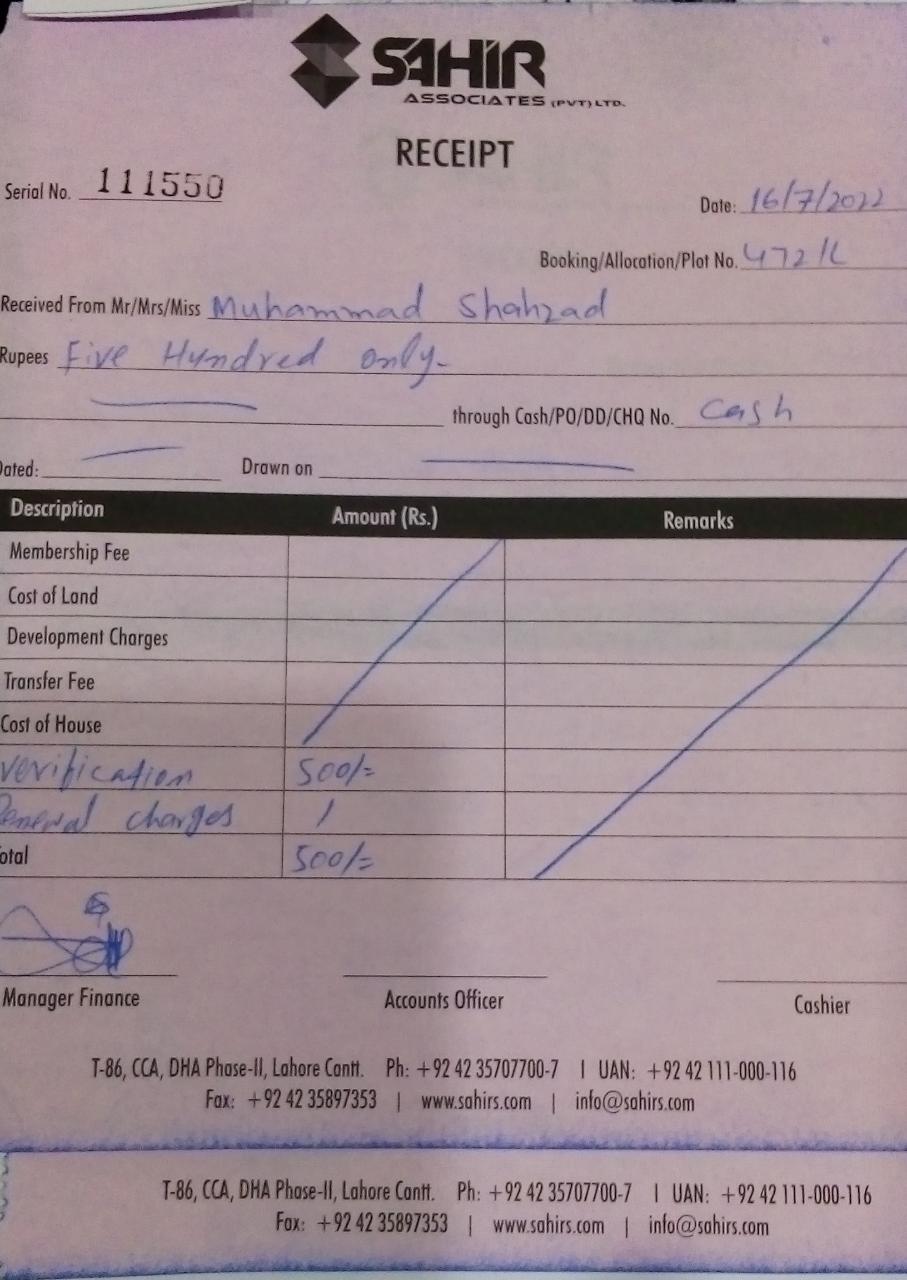 SAHIR
ASSOCIATES (PVT) LTD.
RECEIPT
Serial No. 111550
Date: 16/7/2022
Booking/Allocation/Plot No. 472/L
Received From Mr/Mrs/Miss Muhammad Shahzad
Rupees Five Hundred only-
through Cash/PO/DD/CHQ No. Cash
Dated: Drawn on
Description Amount (Rs.) Remarks
Membership Fee
Cost of Land
Development Charges
Transfer Fee
Cost of House
verification 500/=
Renewal charges /
otal 500/=
Manager Finance Accounts Officer Cashier
T-86, CCA, DHA Phase-II, Lahore Cantt. Ph: +92 42 35707700-7 | UAN: +92 42 111-000-116
Fax: +92 42 35897353 | www.sahirs.com | info@sahirs.com
T-86, CCA, DHA Phase-II, Lahore Cantt. Ph: +92 42 35707700-7 | UAN: +92 42 111-000-116
Fax: +92 42 35897353 | www.sahirs.com | info@sahirs.com